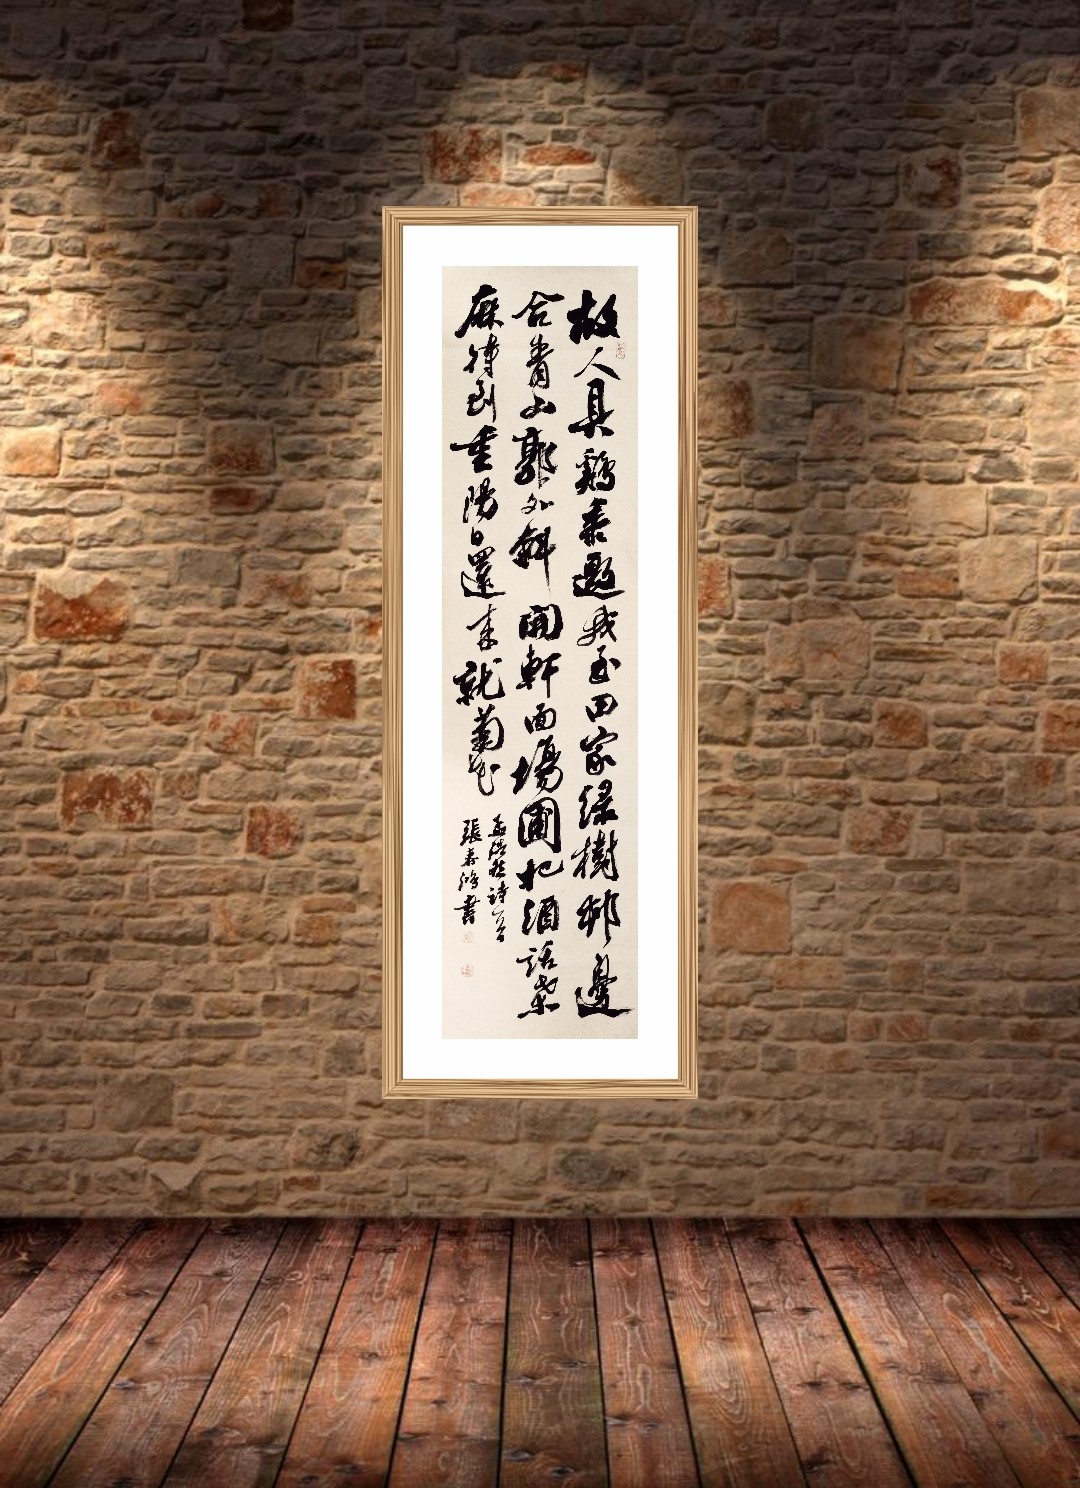 故人具鷄黍邀我至田家绿樹邨邊
合青山郭外斜開軒面場圃把酒話桑
麻待到重陽日還来就菊花
孟浩然诗一首
張壽鴻書